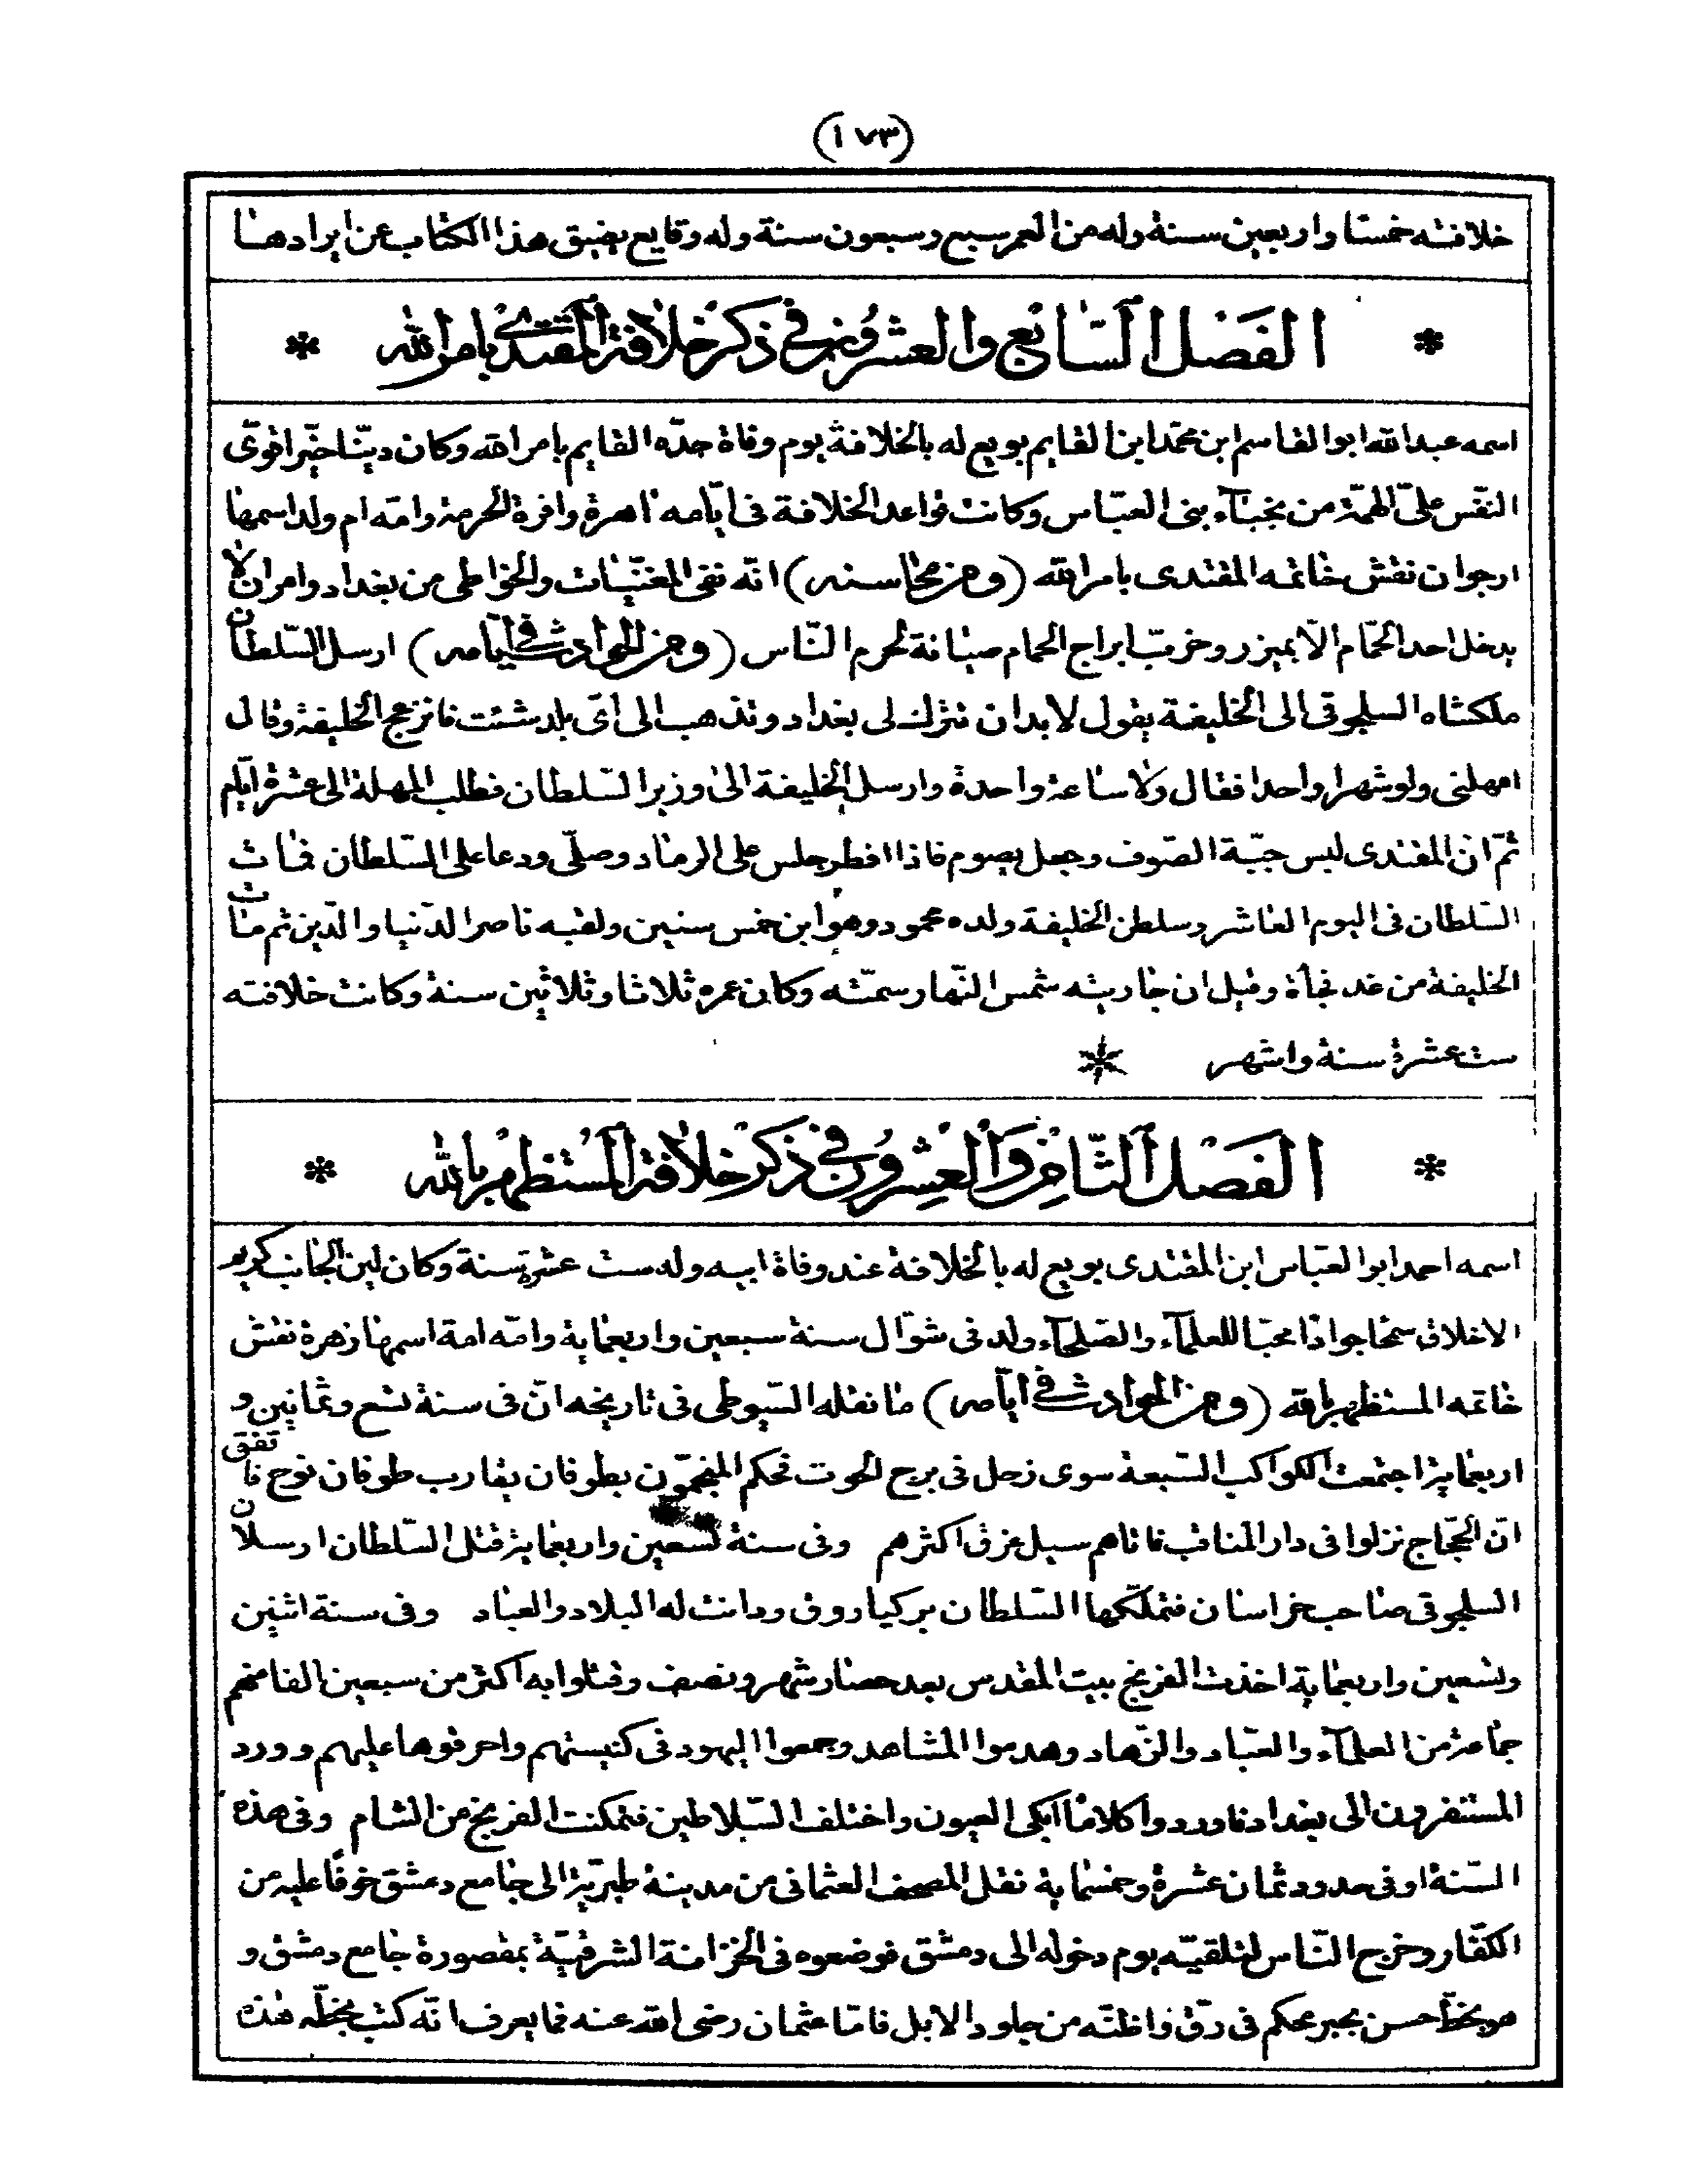 (١٧٣)
خلافته خمسا واربعين سنة وله من العمر سبع وسبعون سنة وله وقايع يضيق هذا الكتاب عن ايرادها
* الفصل السابع والعشرون في ذكر خلافة المقتدى بامر الله *
اسمه عبد الله ابو القاسم ابن محمّد ابن القايم بويع له بالخلافة يوم وفاة جدّه القايم بامر الله وكان ديّنا خيّرا قوىّ
النفس علىّ الهمّة من نجبآء بنى العبّاس وكانت قواعد الخلافة فى ايّامه باهرة وافرة الحرمة وامّه ام ولد اسمها
ارجوان نقش خاتمه المقتدى بامر الله (ومن محاسنه) انّه نفى المغنّيات والخواطى من بغداد وامر ان لا
يدخل احد الحمّام الاّ بميزر وخرّب ابراج الحمام صيانة لحرم النّاس (ومن الحوادث فى ايامه) ارسل السّلطان
ملكشاه السلجوقى الى الخليفة يقول لابد ان تترك لى بغداد وتذهب الى اىّ بلد شئت فانزعج الخليفة وقال
امهلنى ولو شهرا واحدا فقال ولا ساعة واحدة وارسل الخليفة الى وزير السّلطان فطلب المهلة الى عشرة ايّام
ثمّ ان المقتدى لبس جبّة الصّوف وجعل يصوم فاذا افطر جلس على الرماد وصلّى ودعا على السّلطان فمات
السّلطان فى اليوم العاشر وسلطن الخليفة ولده محمود وهو ابن خمس سنين ولقبه ناصر الدّنيا والدّين ثم مات
الخليفة من غد فجأة وقيل ان جاريته شمس النّهار سمّته وكان عمره ثلاثا وثلاثين سنة وكانت خلافته
ست عشرة سنة واشهر *
* الفصل الثّامن والعشرون في ذكر خلافة المستظهر بالله *
اسمه احمد ابو العبّاس ابن المقتدى بويع له بالخلافة عند وفاة ابيه وله ست عشرة سنة وكان لين الجانب كريم
الاخلاق سخّا جوادا محبّا للعلمآء والصّلحآء ولد فى شوّال سنة سبعين واربعماية وامّه امة اسمها زهرة نقش
خاتمه المستظهر بالله (ومن الحوادث فى ايّامه) ما نقله السّيوطى فى تاريخه انّ فى سنة تسع وثمانين و
اربعماية اجتمعت الكواكب السّبعة سوى زحل فى برج الحوت فحكم المنجّمون بطوفان يقارب طوفان نوح فاتفق
انّ الحجّاج نزلوا فى دار المناقب فاتاهم سيل غرق اكثرهم وفى سنة تسعين واربعماية قتل السّلطان ارسلان
السلجوقى صاحب خراسان فتملّكها السّلطان بركياروق ودانت له البلاد والعباد وفى سنة اثنين
وتسعين واربعماية اخذت الفرنج بيت المقدس بعد حصار شهر ونصف وقتلوا به اكثر من سبعين الفا منهم
جماعة من العلمآء والعبّاد والزّهاد وهدموا المشاهد وجمعوا اليهود فى كنيستهم واحرقوها عليهم وورد
المستنفرون الى بغداد فاوردوا كلاما ابكى العيون واختلف السّلاطين فتمكنت الفرنج من الشام وفى هذه
السّنة او فى حدود ثمان عشرة وخمسماية نقل المصحف العثمانى من مدينة طبريّة الى جامع دمشق خوفا عليه من
الكفّار وخرج النّاس لتلقيّه يوم دخوله الى دمشق فوضعوه فى الخزانة الشرقيّة بمقصورة جامع دمشق و
هو بخطّ حسن بحبر محكم فى رقّ واظنّه من جلود الابل فامّا عثمان رضى الله عنه فما يعرف انّه كتب بخطّه هذه